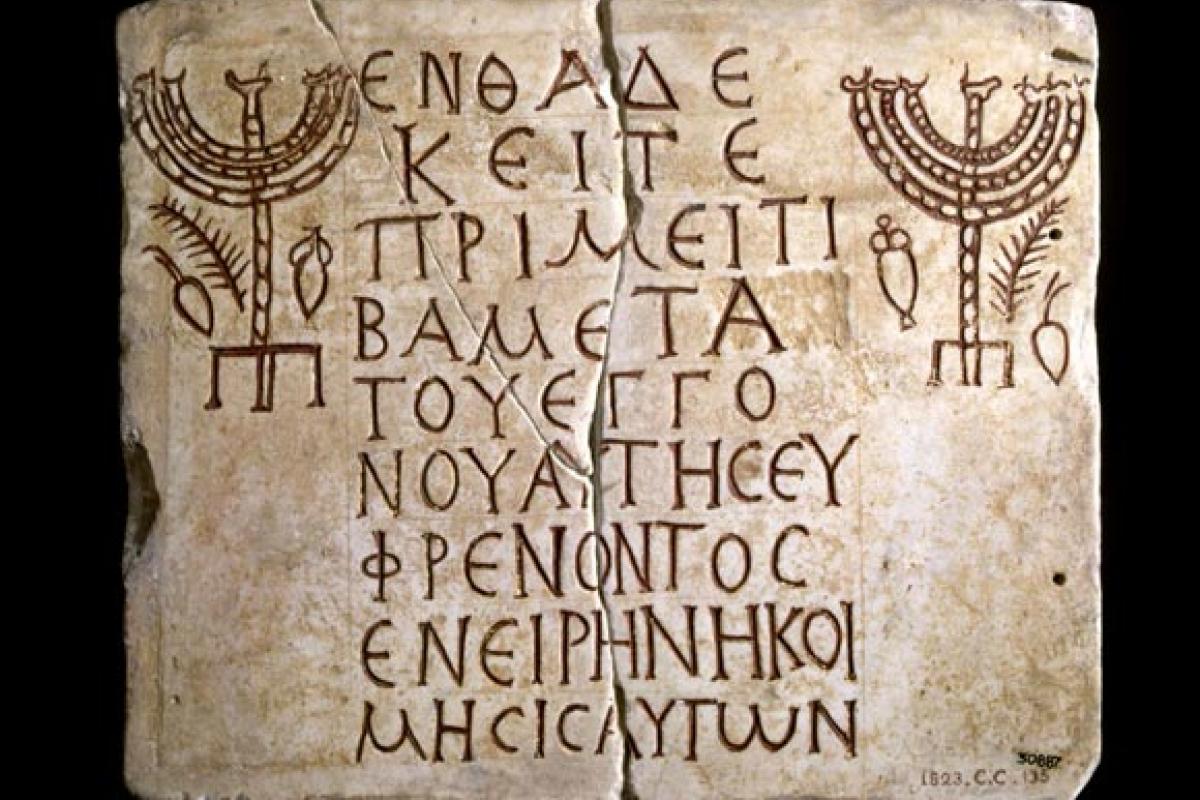 ΕΝΘΑΔΕ
ΚΕΙΤΕ
ΠΡΙΜΕΙΤΙ
ΒΑΜΕΤΑ
ΤΟΥΕΓΓΟ
ΝΟΥΑΥΤΗϹΕΥ
ΦΡΕΝΟΝΤΟϹ
ΕΝΕΙΡΗΝΗΚΟΙ
ΜΗϹΙϹΑΥΤωΝ
50887
1823.C.C.135